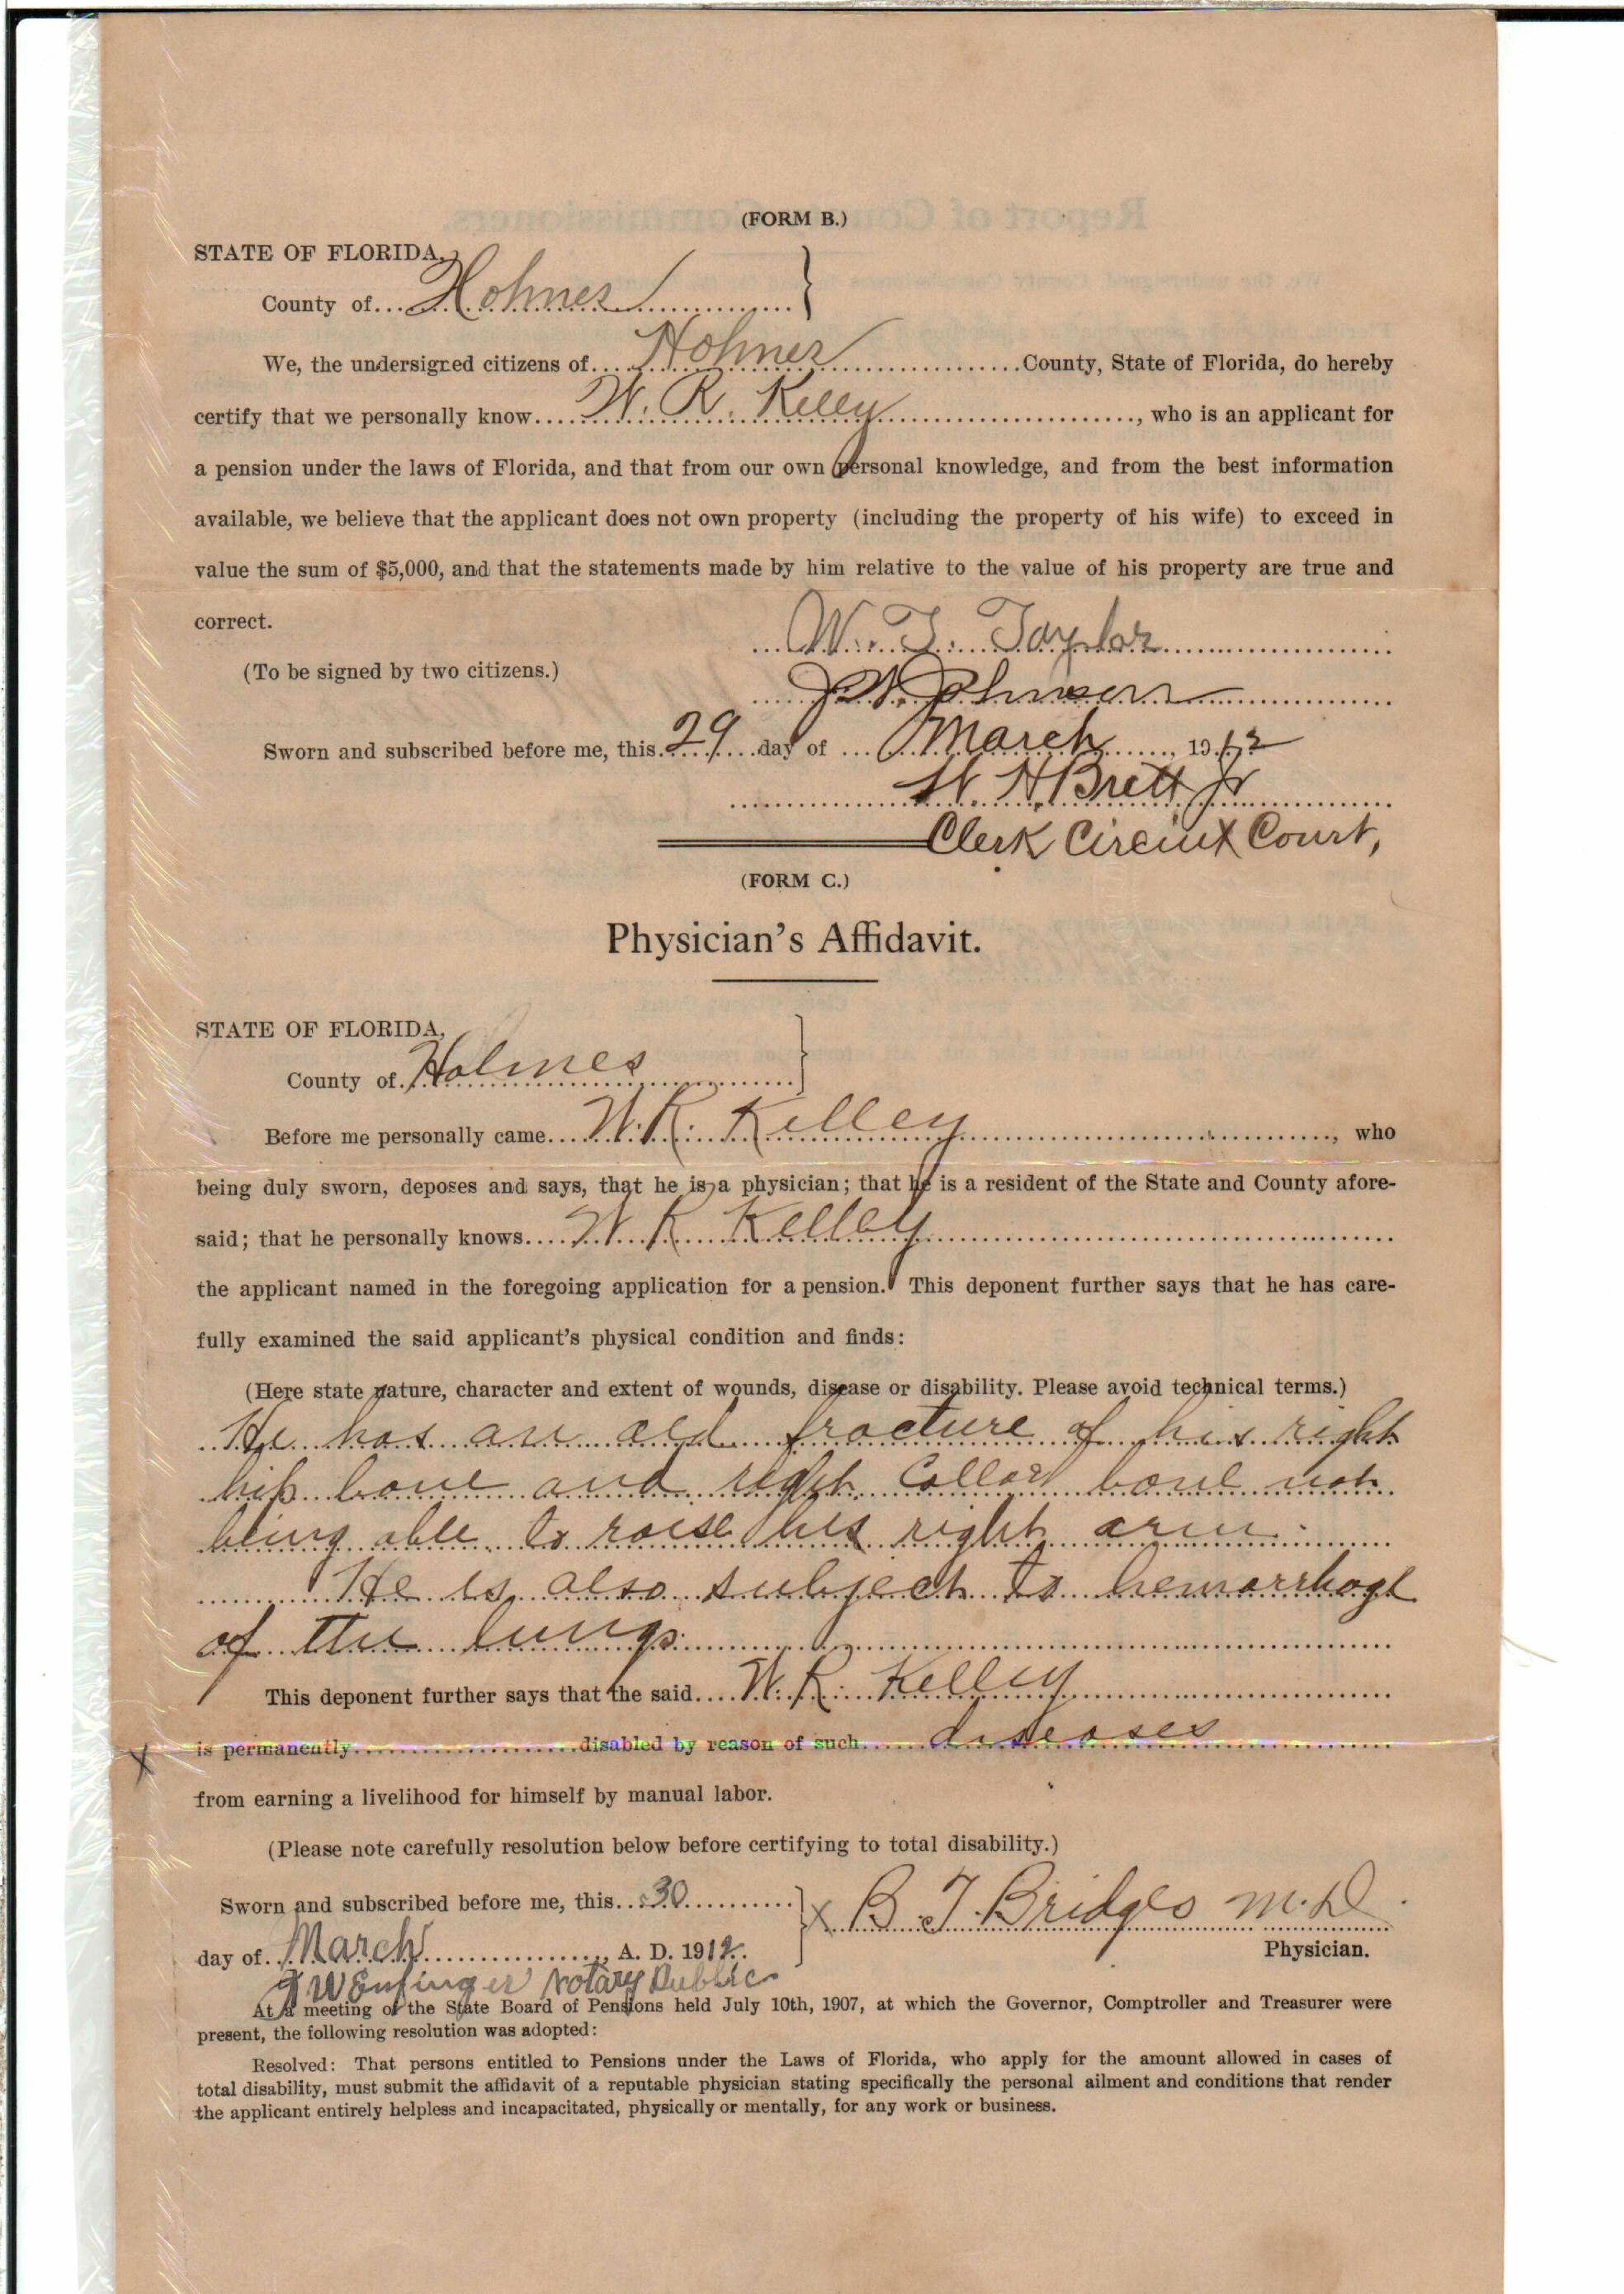 (FORM B.)
STATE OF FLORIDA,
County of Holmes
We, the undersigned citizens of Holmes County, State of Florida, do hereby
certify that we personally know W. R. Kelley, who is an applicant for
a pension under the laws of Florida, and that from our own personal knowledge, and from the best information
available, we believe that the applicant does not own property (including the property of his wife) to exceed in
value the sum of $5,000, and that the statements made by him relative to the value of his property are true and
correct.
W. T. Taylor
(To be signed by two citizens.)
J W Johnson
Sworn and subscribed before me, this 29 day of March, 1912
W. H Brett Jr
Clerk Circuit Court,
(FORM C.)
Physician's Affidavit.
STATE OF FLORIDA,
County of Holmes
Before me personally came W. R. Kelley, who
being duly sworn, deposes and says, that he is a physician; that he is a resident of the State and County afore-
said; that he personally knows W R Kelley
the applicant named in the foregoing application for a pension. This deponent further says that he has care-
fully examined the said applicant's physical condition and finds:
(Here state nature, character and extent of wounds, disease or disability. Please avoid technical terms.)
He has an old fracture of his right
hip bone and right Collar bone not
being able to raise his right arm.
He is also subject to hemorrhage
of the lungs
This deponent further says that the said W. R. Kelley
x is permanently disabled by reason of such diseases
from earning a livelihood for himself by manual labor.
(Please note carefully resolution below before certifying to total disability.)
Sworn and subscribed before me, this 30
x B. T. Bridges M.D.
day of March, A. D. 1912.
Physician.
J W Enfinger Notary Public
At a meeting of the State Board of Pensions held July 10th, 1907, at which the Governor, Comptroller and Treasurer were
present, the following resolution was adopted:
Resolved: That persons entitled to Pensions under the Laws of Florida, who apply for the amount allowed in cases of
total disability, must submit the affidavit of a reputable physician stating specifically the personal ailment and conditions that render
the applicant entirely helpless and incapacitated, physically or mentally, for any work or business.